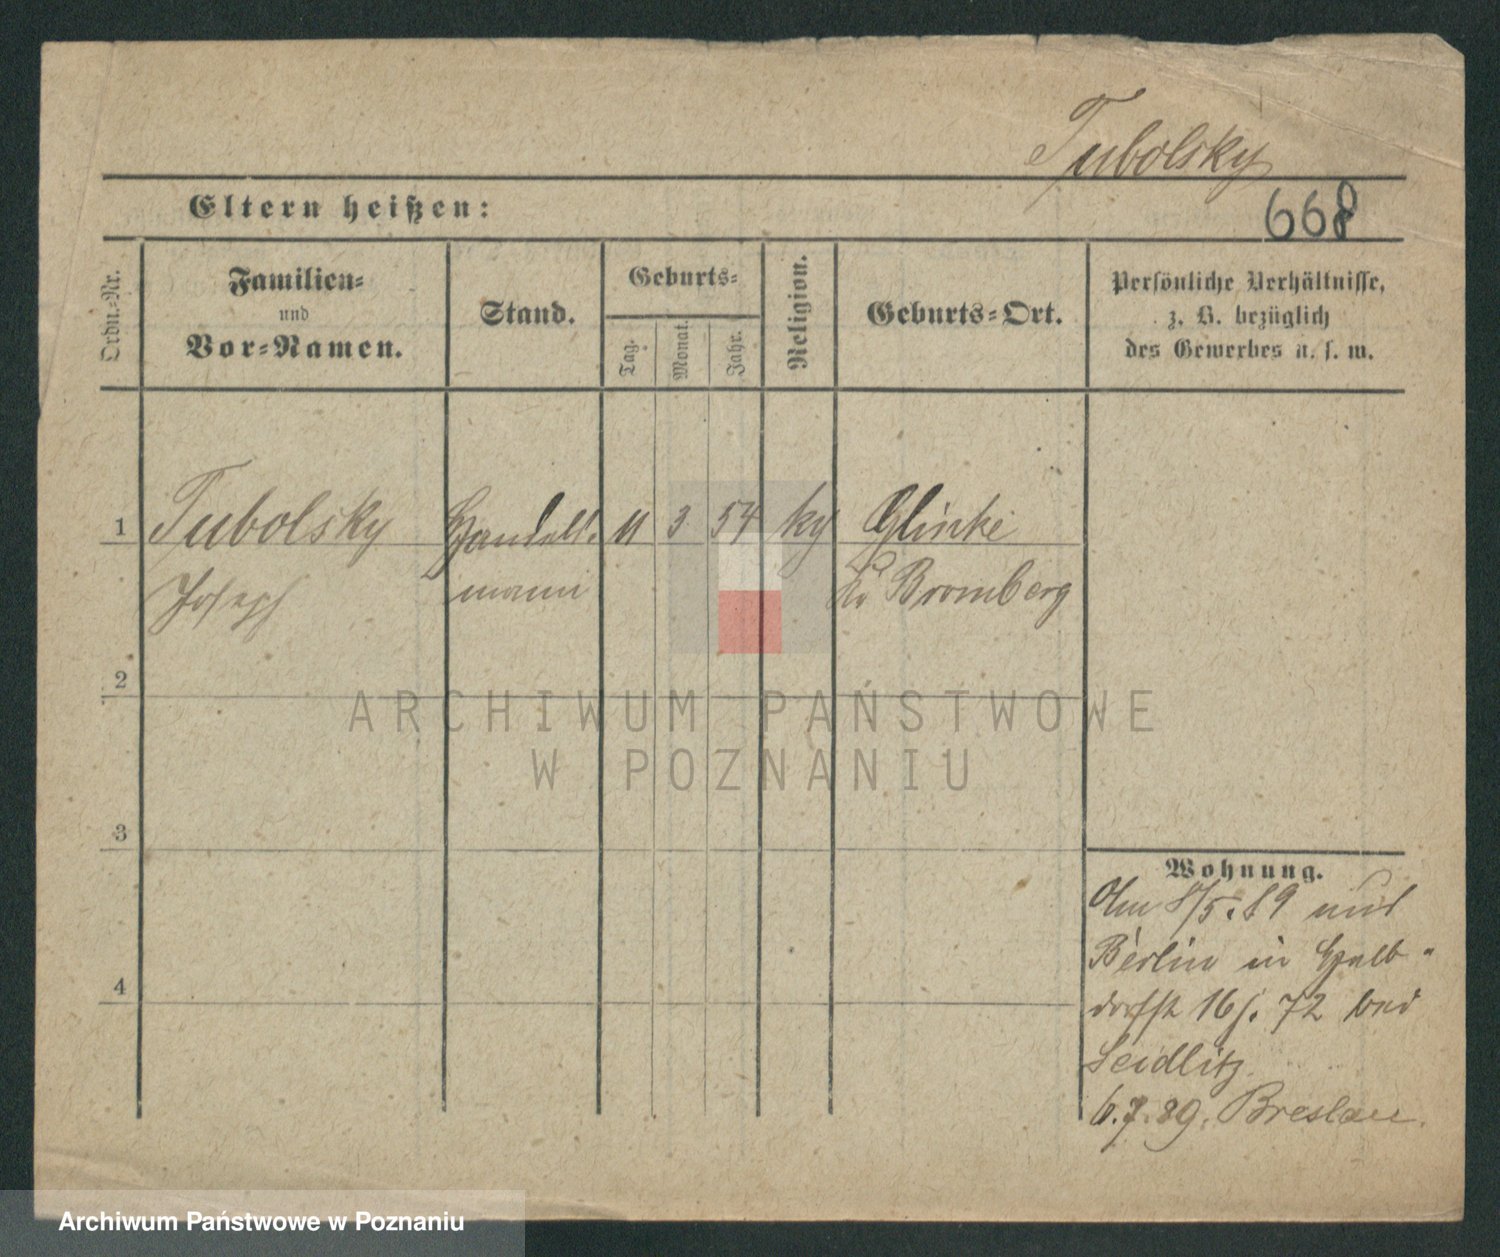 Tubolsky
Eltern heißen:
668
Ordn.-Nr.
Familien-
und
Vor-Namen.
Stand.
Geburts-
Tag.
Monat.
Jahr.
Religion.
Geburts-Ort.
Persönliche Verhältnisse,
z. B. bezüglich
des Gewerbes u. s. w.
1 Tubolsky Handels- 11 3 54 Glinke
Joseph mann Kr Bromberg
2
3
4
Wohnung.
Am 8/5.89 aus
Berlin in Halb-
dorfstr 16 J. 72 bei
Seidlitz
6.7.89. Breslau.
ARCHIWUM PAŃSTWOWE
W POZNANIU
Archiwum Państwowe w Poznaniu